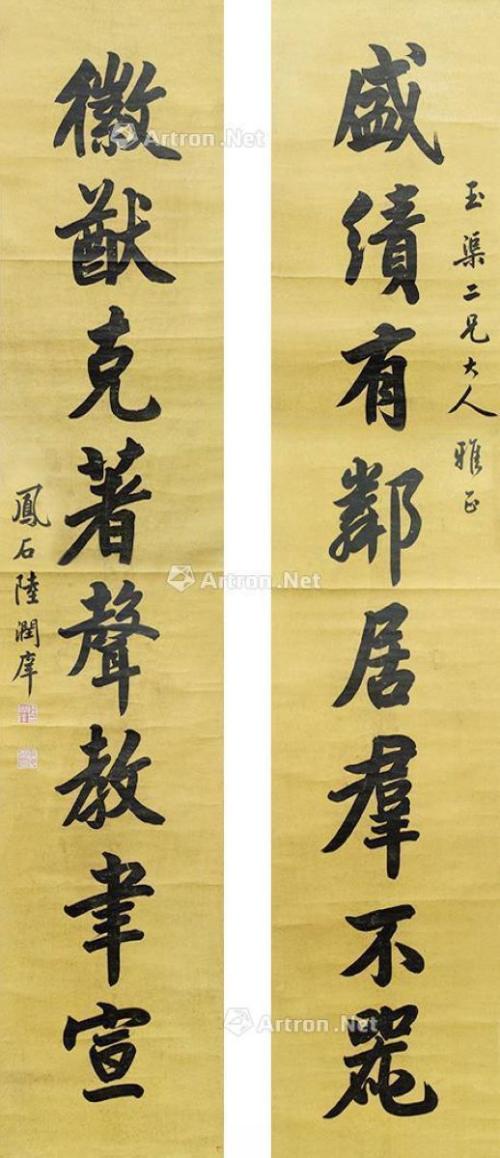 玉渠二兄大人雅正
盛績有鄰居羣不
徽猷克著聲教聿宣
鳳石陸潤庠
Artron.Net
Artron.Net
Artron.Net